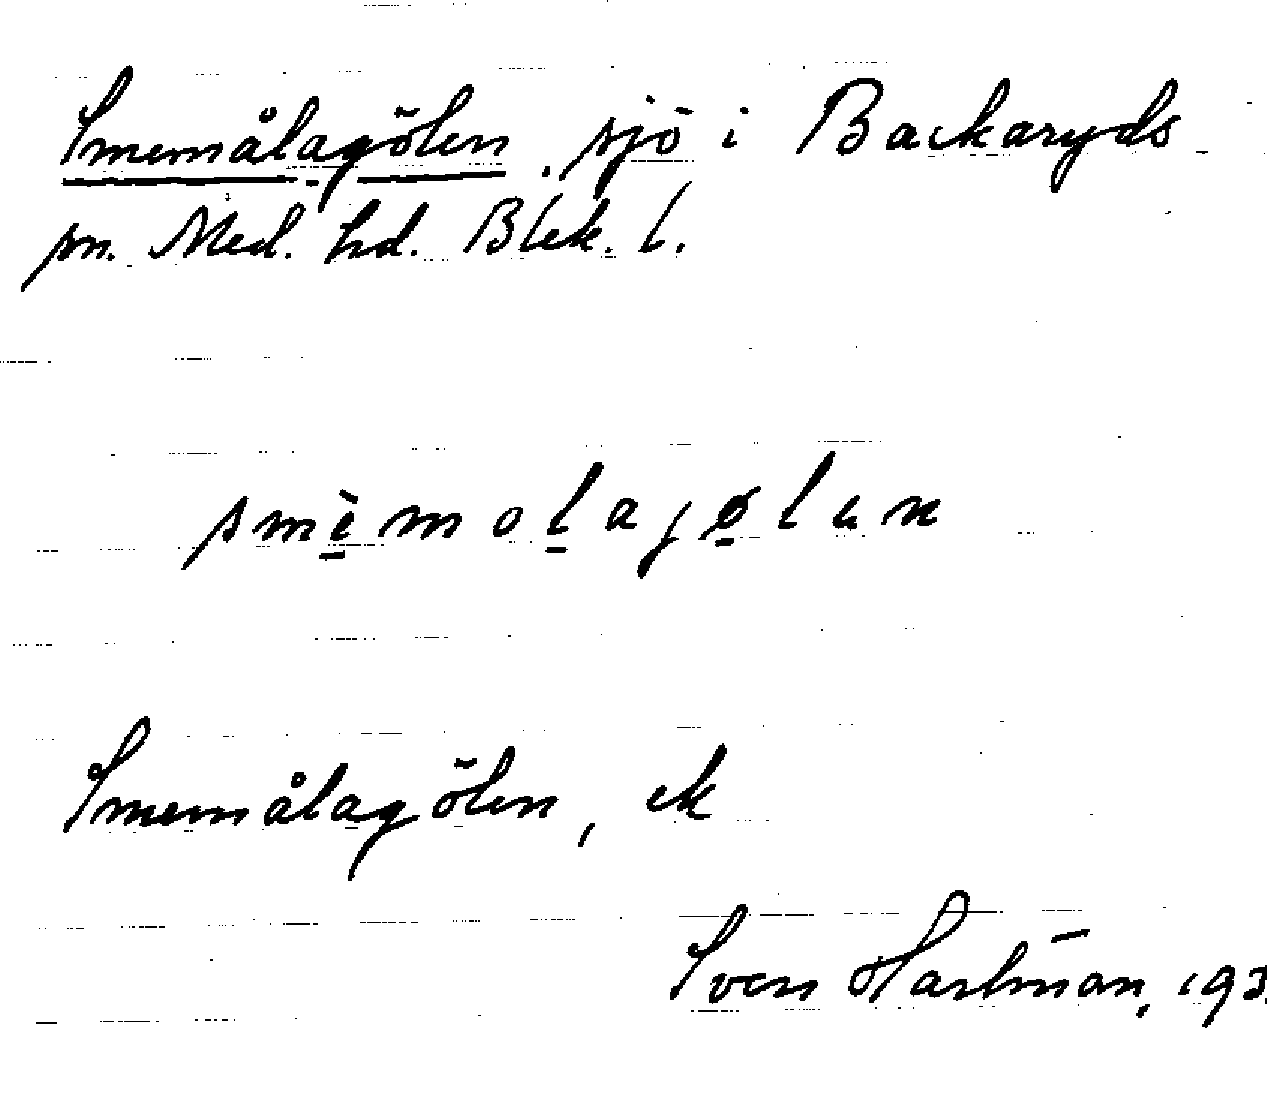 Smemålagölen, sjö i Backaryds
sn. Med. hd. Blek. l.
smèmolagølan
Smemålagölen, ek
Sven Hartman, 193